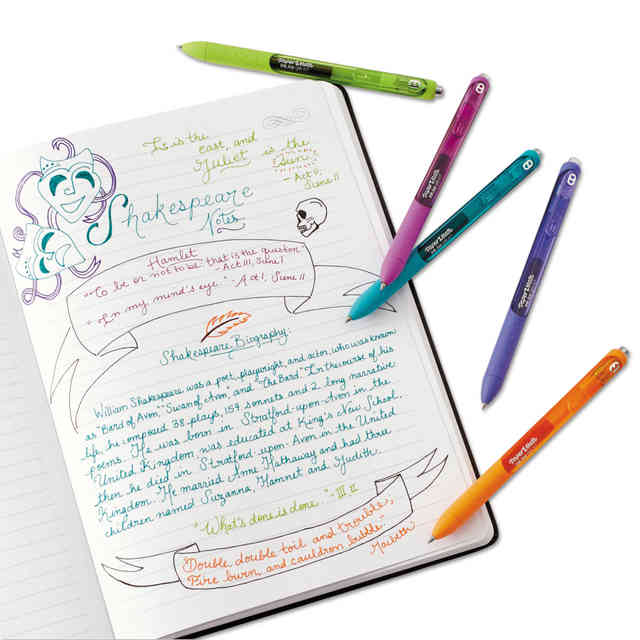 It is the
east, and
Juliet is the
Sun.
- Act II,
Scene II
Shakespeare
Notes
Hamlet
"To be or not to be that is the question"
- Act III, Scene I
"In my mind's eye." - Act I, Scene II
Shakespeare Biography:
William Shakespeare was a poet, playwright, and actor, who was known
as "Bard of Avon," "Swan of Avon, and "The Bard". In the course of his
life, he composed 38 plays, 154 sonnets and 2 long narrative
poems. He was born in Stratford-upon-Avon in the
United Kingdom, was educated at King's New School,
then he died in Stratford-upon-Avon in the United
Kingdom. He married Anne Hathaway and had three
children named Suzanna, Hamnet and Judith.
"What's done is done." - III, II
"Double, double toil and trouble,
Fire burn and cauldron bubble."
Macbeth
Paper Mate
Paper Mate
Paper Mate
Paper Mate
Paper Mate